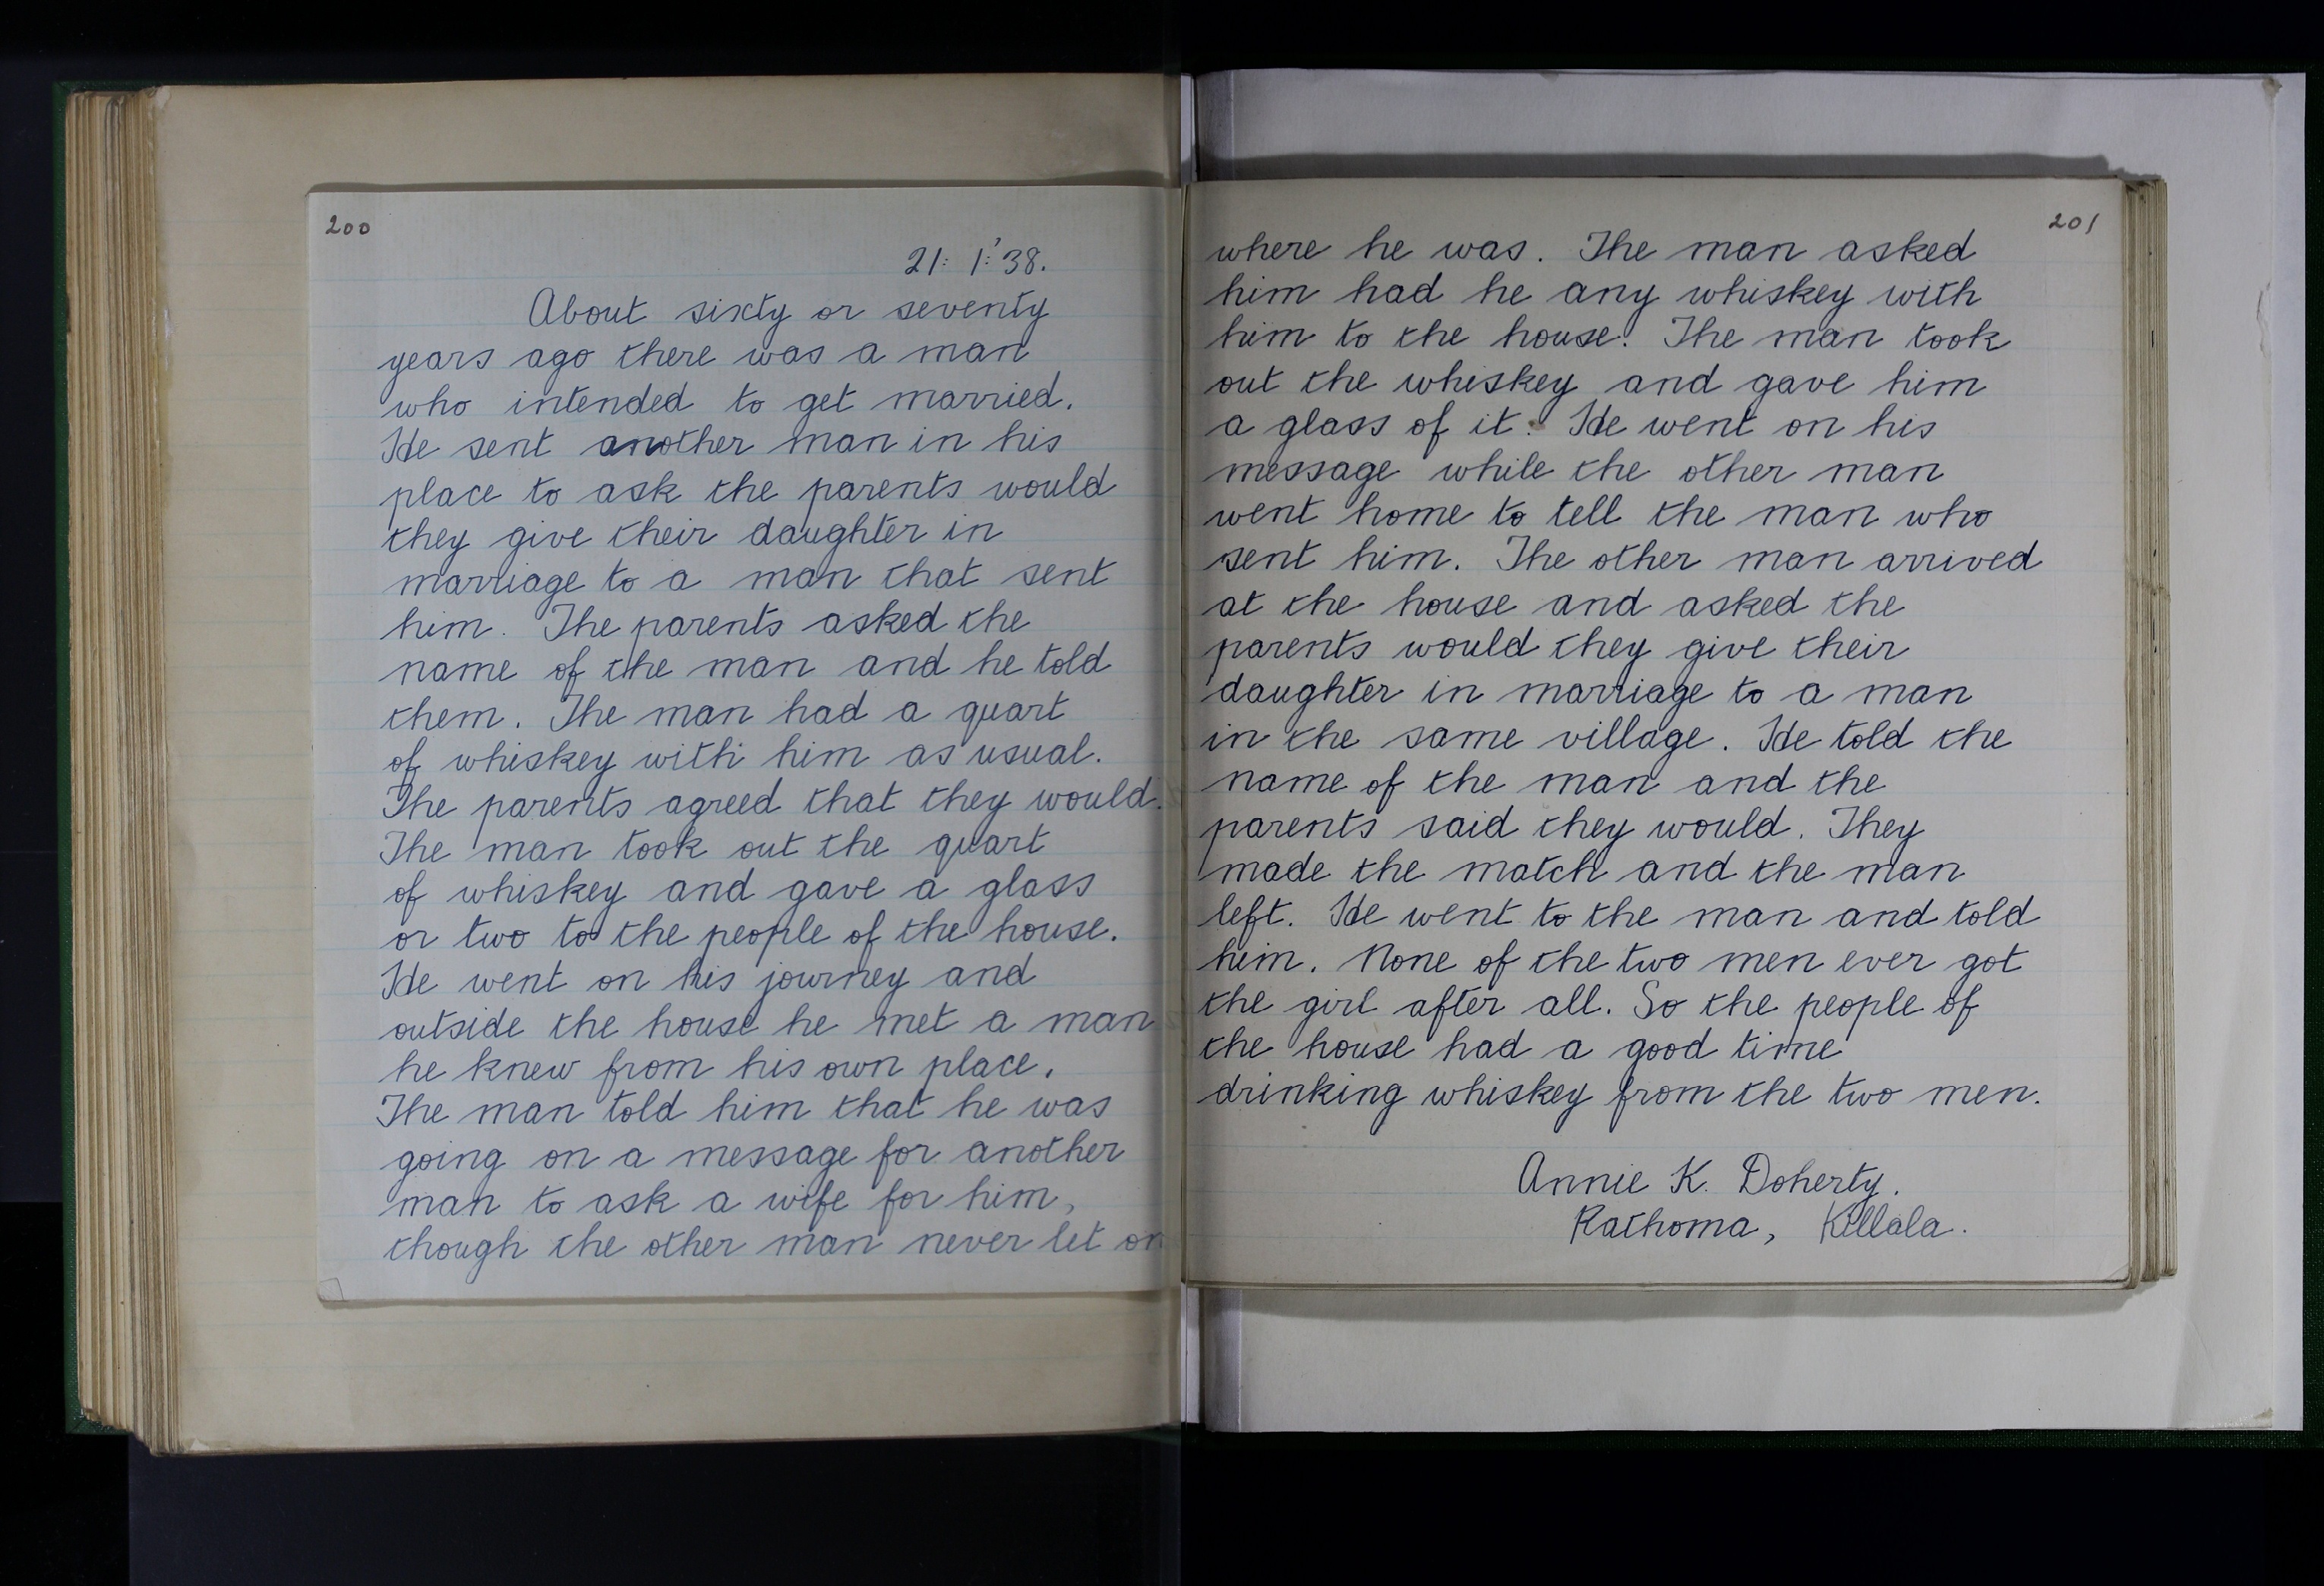 200
21: 1:' 38.
About sixty or seventy
years ago there was a man
who intended to get married.
He sent another man in his
place to ask the parents would
they give their daughter in
marriage to a man that sent
him. The parents asked the
name of the man and he told
them. The man had a quart
of whiskey with him as usual.
The parents agreed that they would.
The man took out the quart
of whiskey and gave a glass
or two to the people of the house.
He went on his journey and
outside the house he met a man
he knew from his own place.
The man told him that he was
going on a message for another
man to ask a wife for him,
though the other man never let on
201
where he was. The man asked
him had he any whiskey with
him to the house? The man took
out the whiskey and gave him
a glass of it. He went on his
message while the other man
went home to tell the man who
sent him. The other man arrived
at the house and asked the
parents would they give their
daughter in marriage to a man
in the same village. He told the
name of the man and the
parents said they would. They
made the match and the man
left. He went to the man and told
him. None of the two men ever got
the girl after all. So the people of
the house had a good time
drinking whiskey from the two men.
Annie K. Doherty.
Rathoma, Killala.